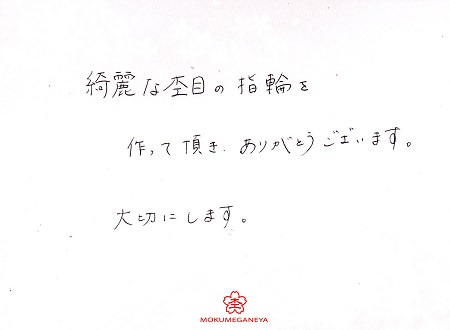 綺麗な杢目の指輪を
作って頂き、ありがとうございます。
大切にします。
MOKUMEGANEYA